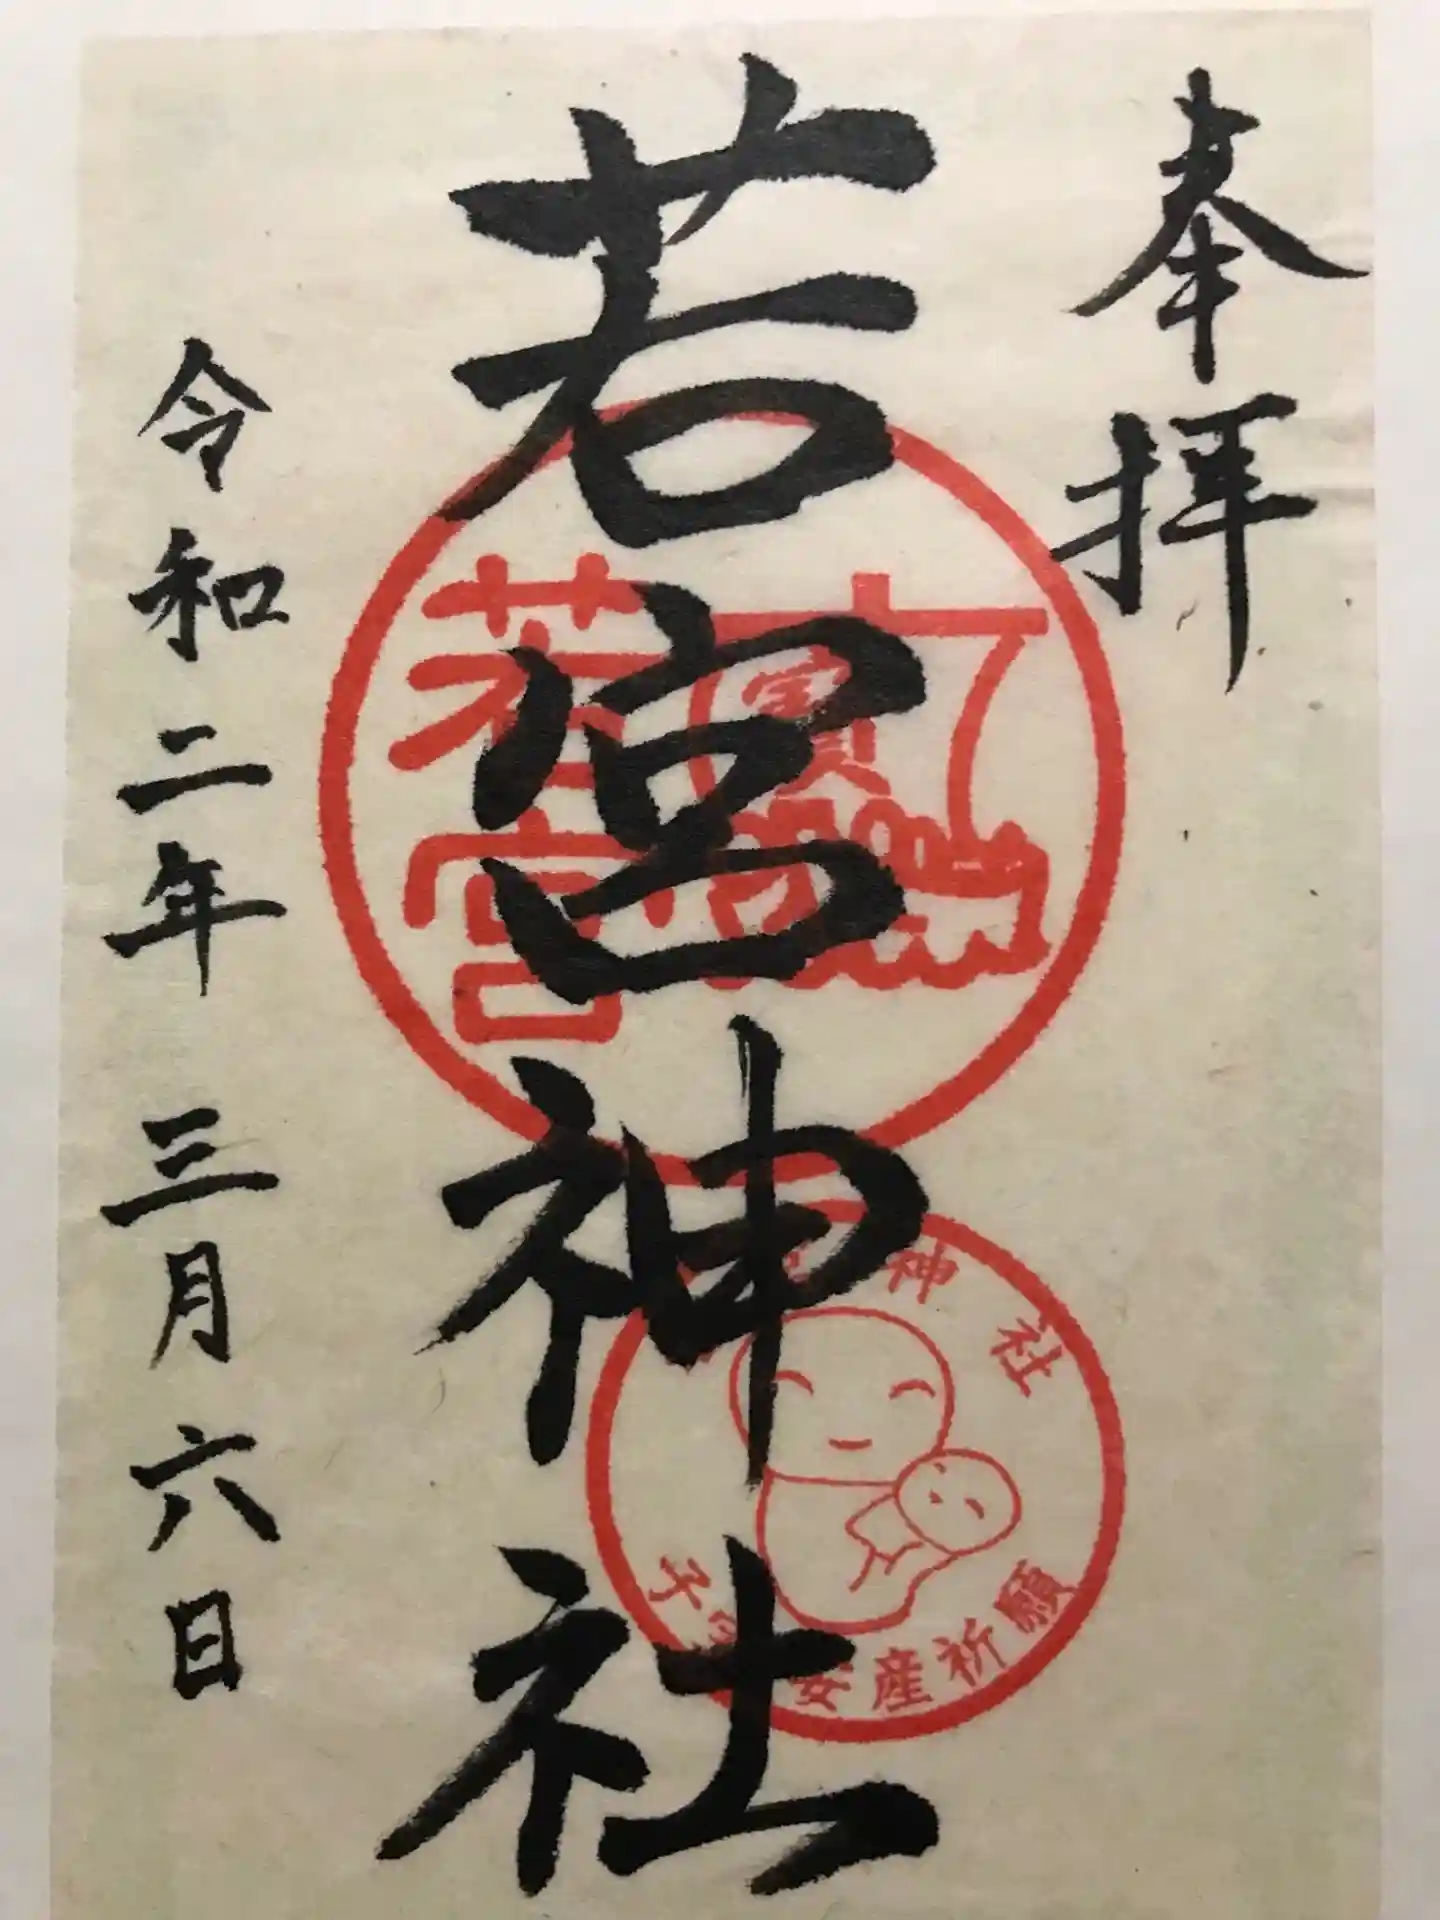 奉拝
若宮神社
令和二年 三月六日
若宮
寳
神社
安産祈願